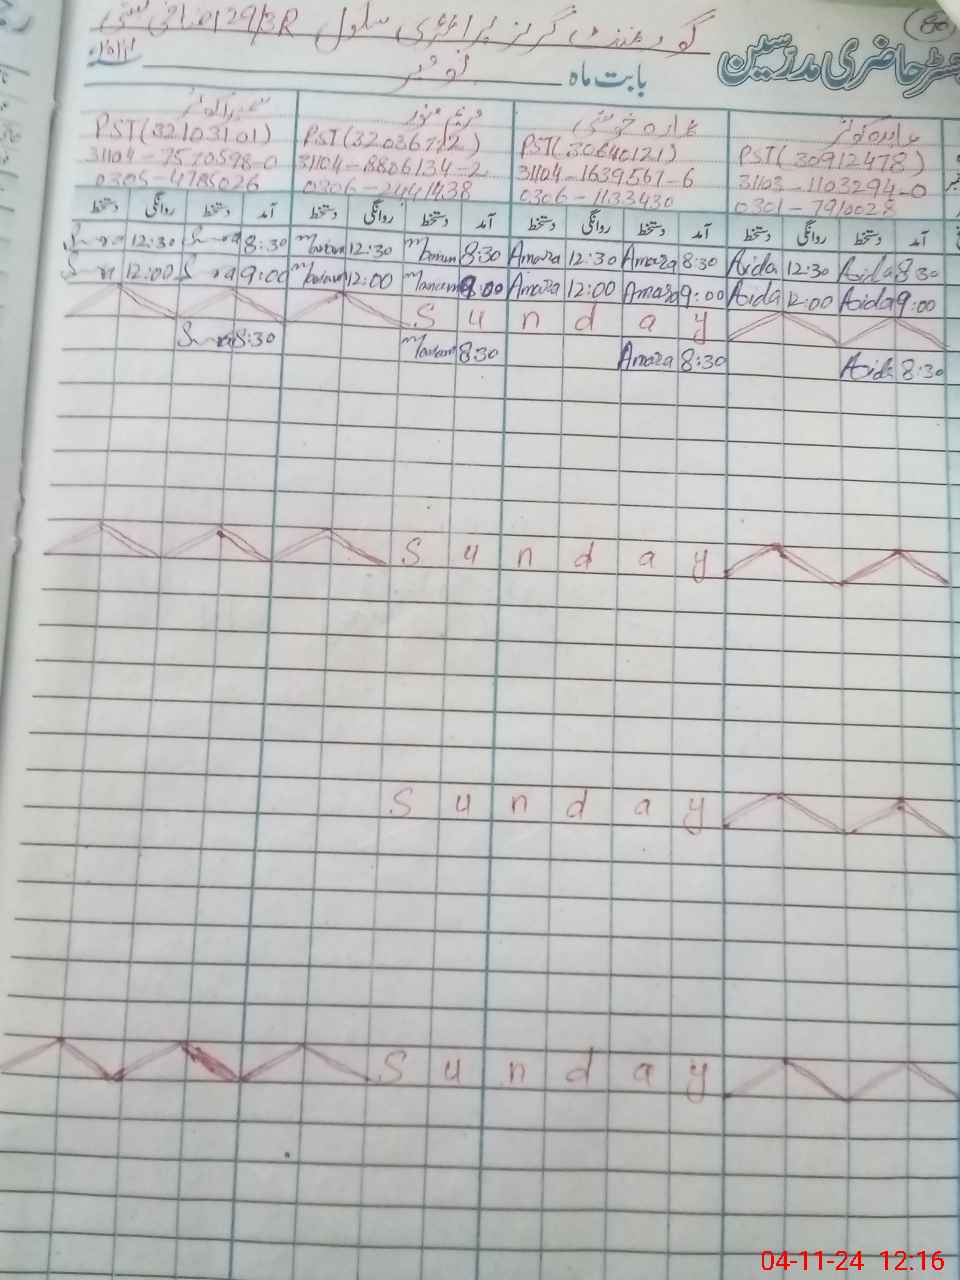 گورنمنٹ گرلز پرائمری سکول 129/3R
رجسٹر حاضری مدرسین
بابت ماہ نومبر
عابدہ کوثر
عمارہ خوشی
مریم منور
PST(32103101) PST(32036772) PST(30640121) PST(30912478)
31104-7570598-0 31104-8806134-2 31104-1639567-6 31103-1103294-0
0305-4785026 0306-2441438 0306-1133430 0301-7910028
آمد دستخط روانگی دستخط آمد دستخط روانگی دستخط آمد دستخط روانگی دستخط آمد دستخط روانگی دستخط
12:30 8:30 12:30 8:30 Amara 12:30 Amara 8:30 Aida 12:30 Aida 8:30
12:00 9:00 12:00 9:00 Amara 12:00 Amara 9:00 Aida 12:00 Aida 9:00
Sunday
8:30 8:30 Amara 8:30 Aida 8:30
Sunday
Sunday
Sunday
04-11-24 12:16